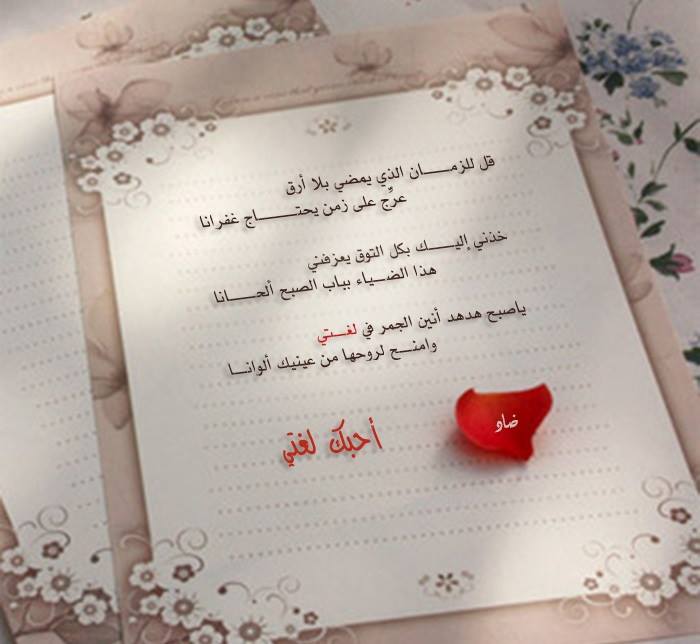 قل للزمـــان الذي يمضي بلا أرق
عرِّج على زمن يحتــــاج غفرانا
خذني إليـــك بكل التوق يعزفني
هذا الضــياء بباب الصبح ألحـــانا
ياصبح هدهد أنين الجمر في لغــتي
وامنـــح لروحها من عينيك ألوانــا
ضاد
أحبك لغتي